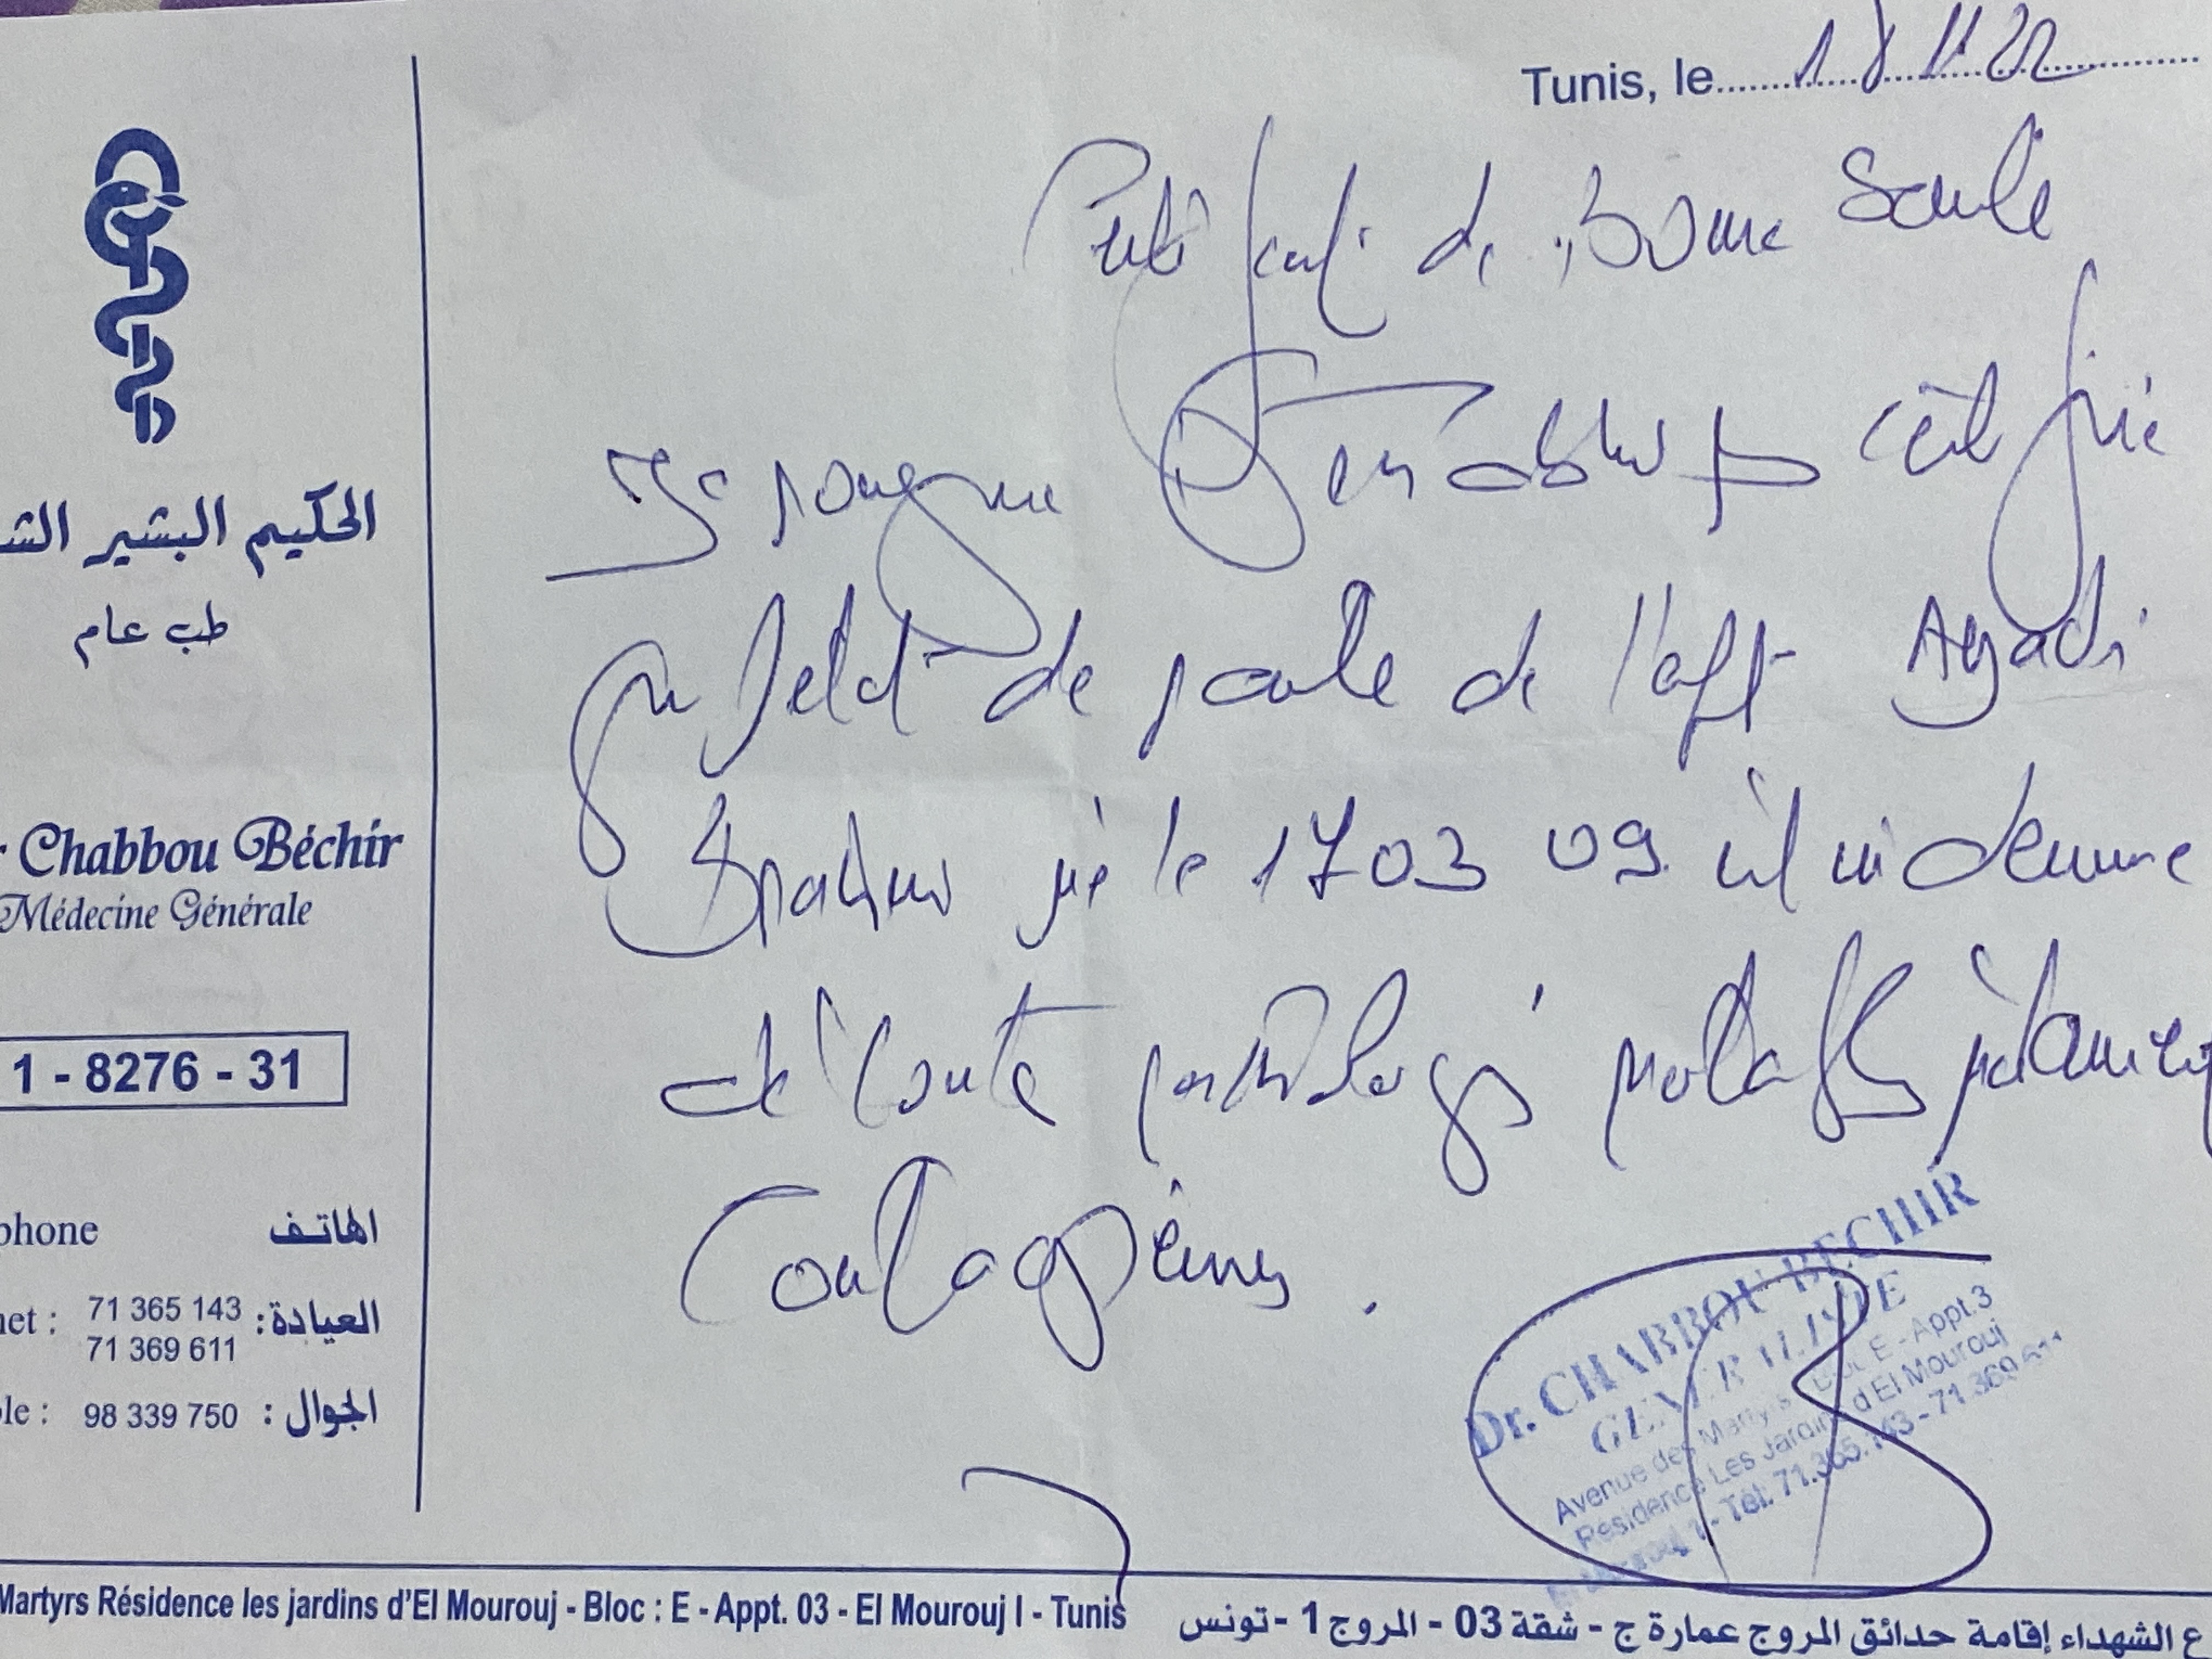 Tunis, le 18 11 22
Certificat de Bonne Santé
Je soussigné Dr certifie
que l'état de santé de Ayadi
né le 17 03 09 est indemne
de toute pathologie
Contagieuse.
الحكيم البشير الش
طب عام
Chabbou Béchir
Médecine Générale
1 - 8276 - 31
phone الهاتف
net : 71 365 143 العيادة :
71 369 611
le : 98 339 750 الجوال :
Dr. CHABBOU BECHIR
GENERALISTE
Avenue des Martyrs - Bloc E - Appt.3
Résidence Les Jardins d'El Mourouj
Tél: 71.365.143 - 71 369 611
Martyrs Résidence les jardins d'El Mourouj - Bloc : E - Appt. 03 - El Mourouj I - Tunis
ع الشهداء إقامة حدائق المروج عمارة ج - شقة 03 - المروج 1 - تونس